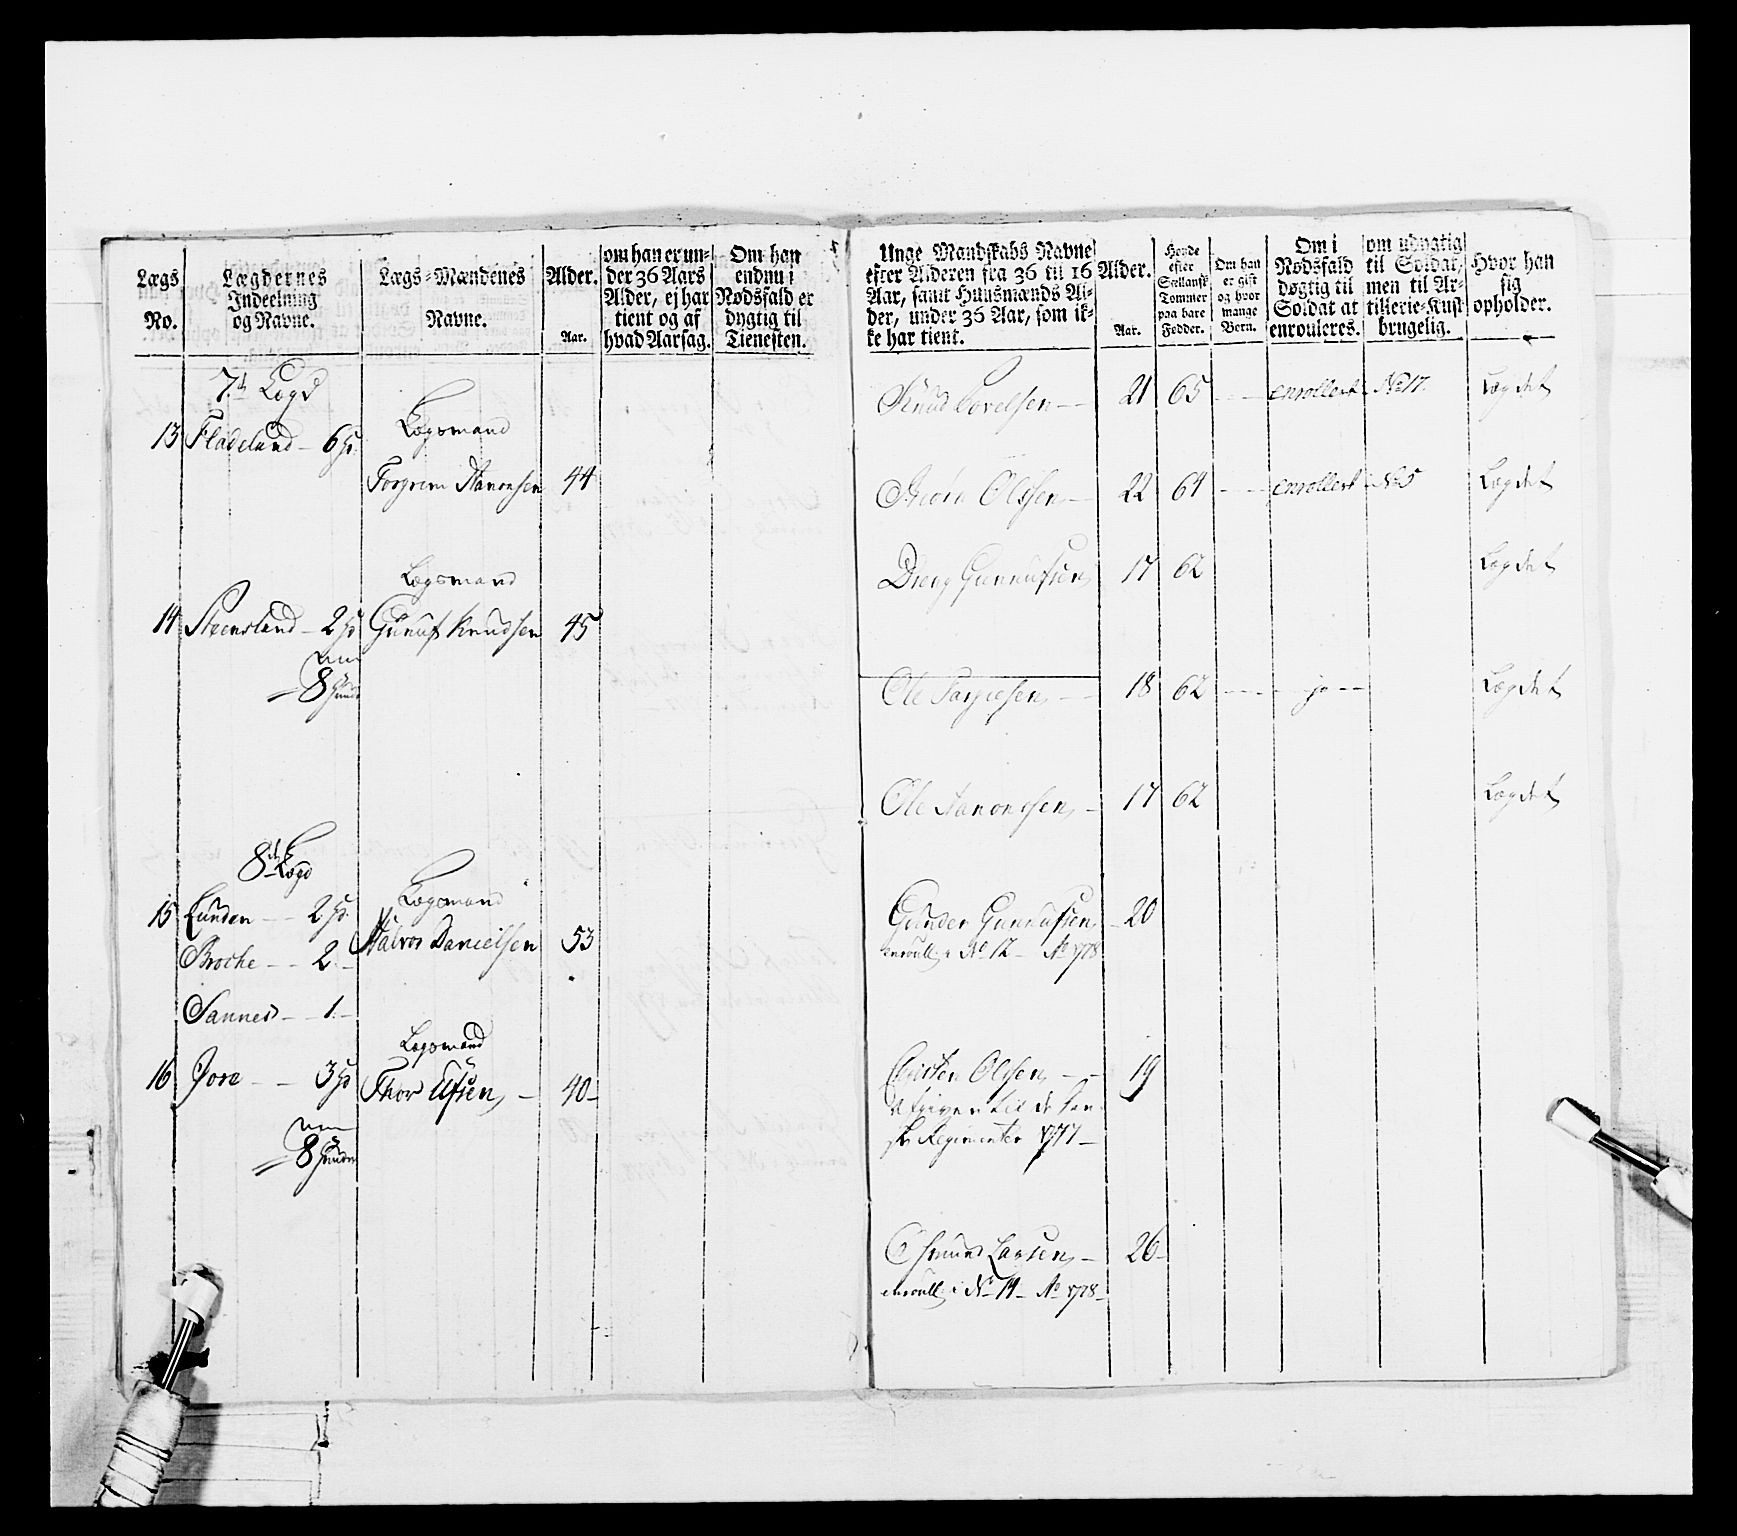 Lægs No.
Lægdernes Indeelning og Navne.
Lægs-Mændenes Navne.
Alder. Aar.
om han er under 36 Aars Alder, ej har tient og af hvad Aarsag.
Om han endnu i Nødsfald er dygtig til Tienesten.
7de Lægd
Lægsmand
13 Fladeland - 6 Hd.
Torgrim Aanonsen 44
Lægsmand
14 Steensland - 2 Hd Gunuf Knudsen 45
8 Huuder
8de Lægd
Lægsmand
15 Lunden - - 2 Hd.
Halvor Danielsen 53
Broche - - 2. -
Sannes - - 1. -
Lægsmand
16 Jore - - 3 Hd Thor Ufsen - 40 -
8 Huuder
Unge Mandskabs Navne efter Alderen fra 36 til 16 Aar, samt Huusmænds Alder, under 36 Aar, som ikke har tient.
Alder. Aar.
Høyde efter Siællansk Tommer paa bare Fødder.
Om han er gift og hvor mange Børn.
Om i Nødsfald døgtig til Soldat at enrouleres.
om udygtig til Soldat, men til Artillerie-Kusk brugelig.
Hvor han sig opholder.
Knud Torelsen - 21 65 - - - enrollert No 17. Lægdet
Olsen - 22 64 - - - enrollert No 5 Lægdet
Dreng Gunnufsen 17 62 Lægdet
Ole Targiesen - - 18 62 - - - - jo - - Lægdet
Ole Aanonsen - 17 62 Lægdet
Gunder Gunnufsen - 20
enroull. i No 12 - Ao 1778
Christen Olsen - - 19
Afgiven til de Dan-
ske Regimenter 1777 -
Osmund Larsen - 26 -
enroull. i No 14 - Ao 1778 -